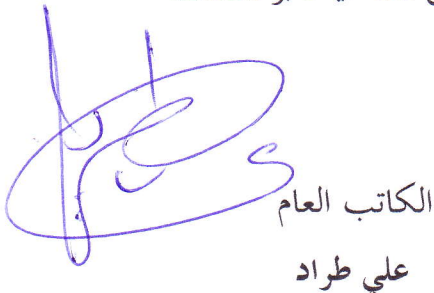 الكاتب العام
علي طراد